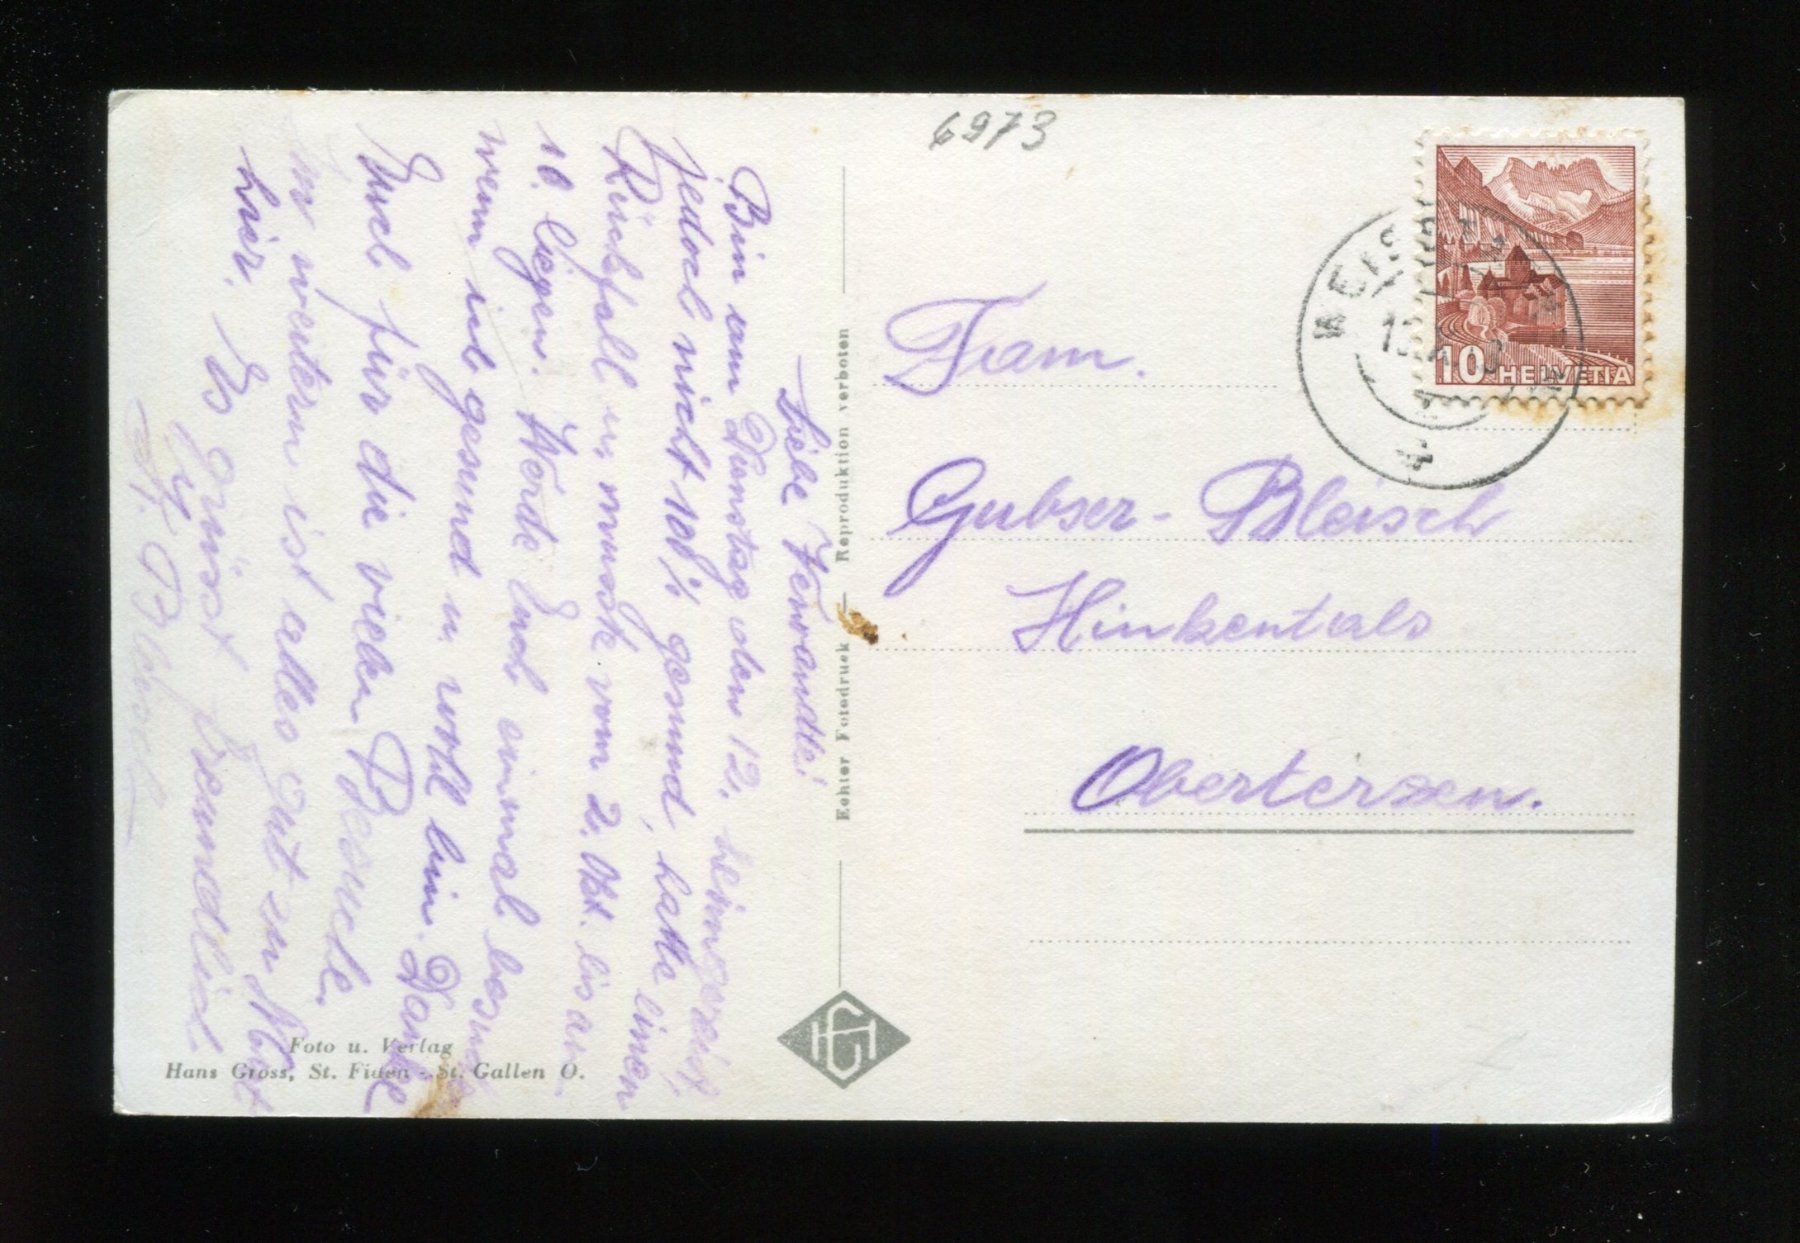 6973
HELVETIA
10
Fam.
Gubser-Bleisch
Hinkentals
Oberterzen.
Echter Fotodruck — Reproduktion verboten
Liebe Verwandte!
Bin am Dienstag den 12. heimgereist,
jedoch nicht 100% gesund, hatte einen
Rückfall u. musste vom 2. Okt. bis am
10. liegen. Werde Euch einmal besuchen
wenn ich gesund u. wohl bin. Danke
Euch für die vielen Besuche.
In ist alles gut zu Mut
hier. Es grüsst freundlich
Foto u. Verlag
Hans Gross, St. Fiden - St. Gallen O.
HG